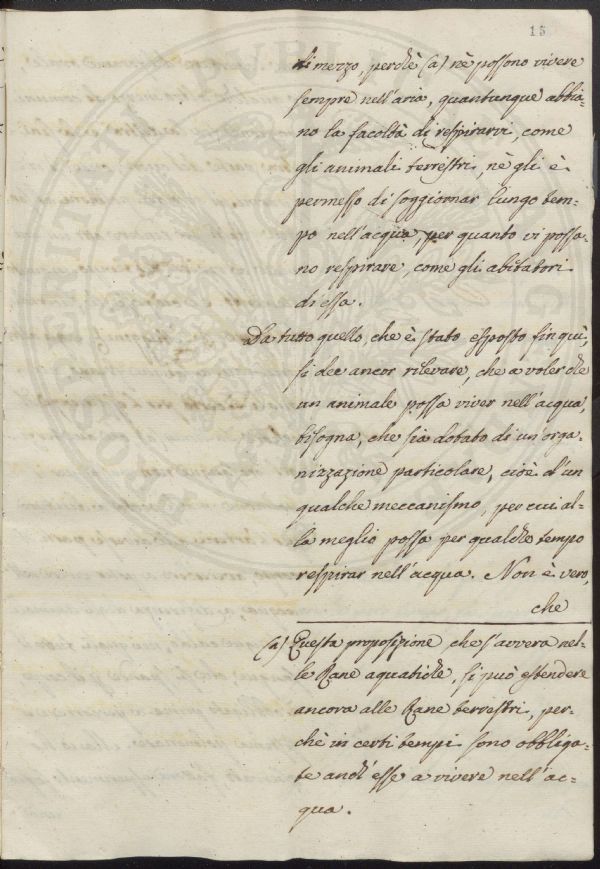 15
di mezzo, perchè (a) nè possono vivere
sempre nell'aria, quantunque abbia-
no la facoltà di respirarvi, come
gli animali terrestri, nè gli è
permesso di soggiornar lungo tem-
po nell'acqua, per quanto vi possa-
no respirare, come gli abitatori
di essa.
Da tutto quello, che è stato esposto fin quì,
si dee ancor rilevare, che a voler che
un animale possa viver nell'acqua,
bisogna, che sia dotato di un'orga-
nizzazione particolare, cioè d'un
qualche meccanismo, per cui al-
la meglio possa per qualche tempo
respirar nell'acqua. Non è vero,
che
(a) Questa proposizione, che s'avvera nel-
le Rane aquatiche, si può estendere
ancora alle Rane terrestri, per-
chè in certi tempi sono obbliga-
te anch'esse a vivere nell'ac-
qua.